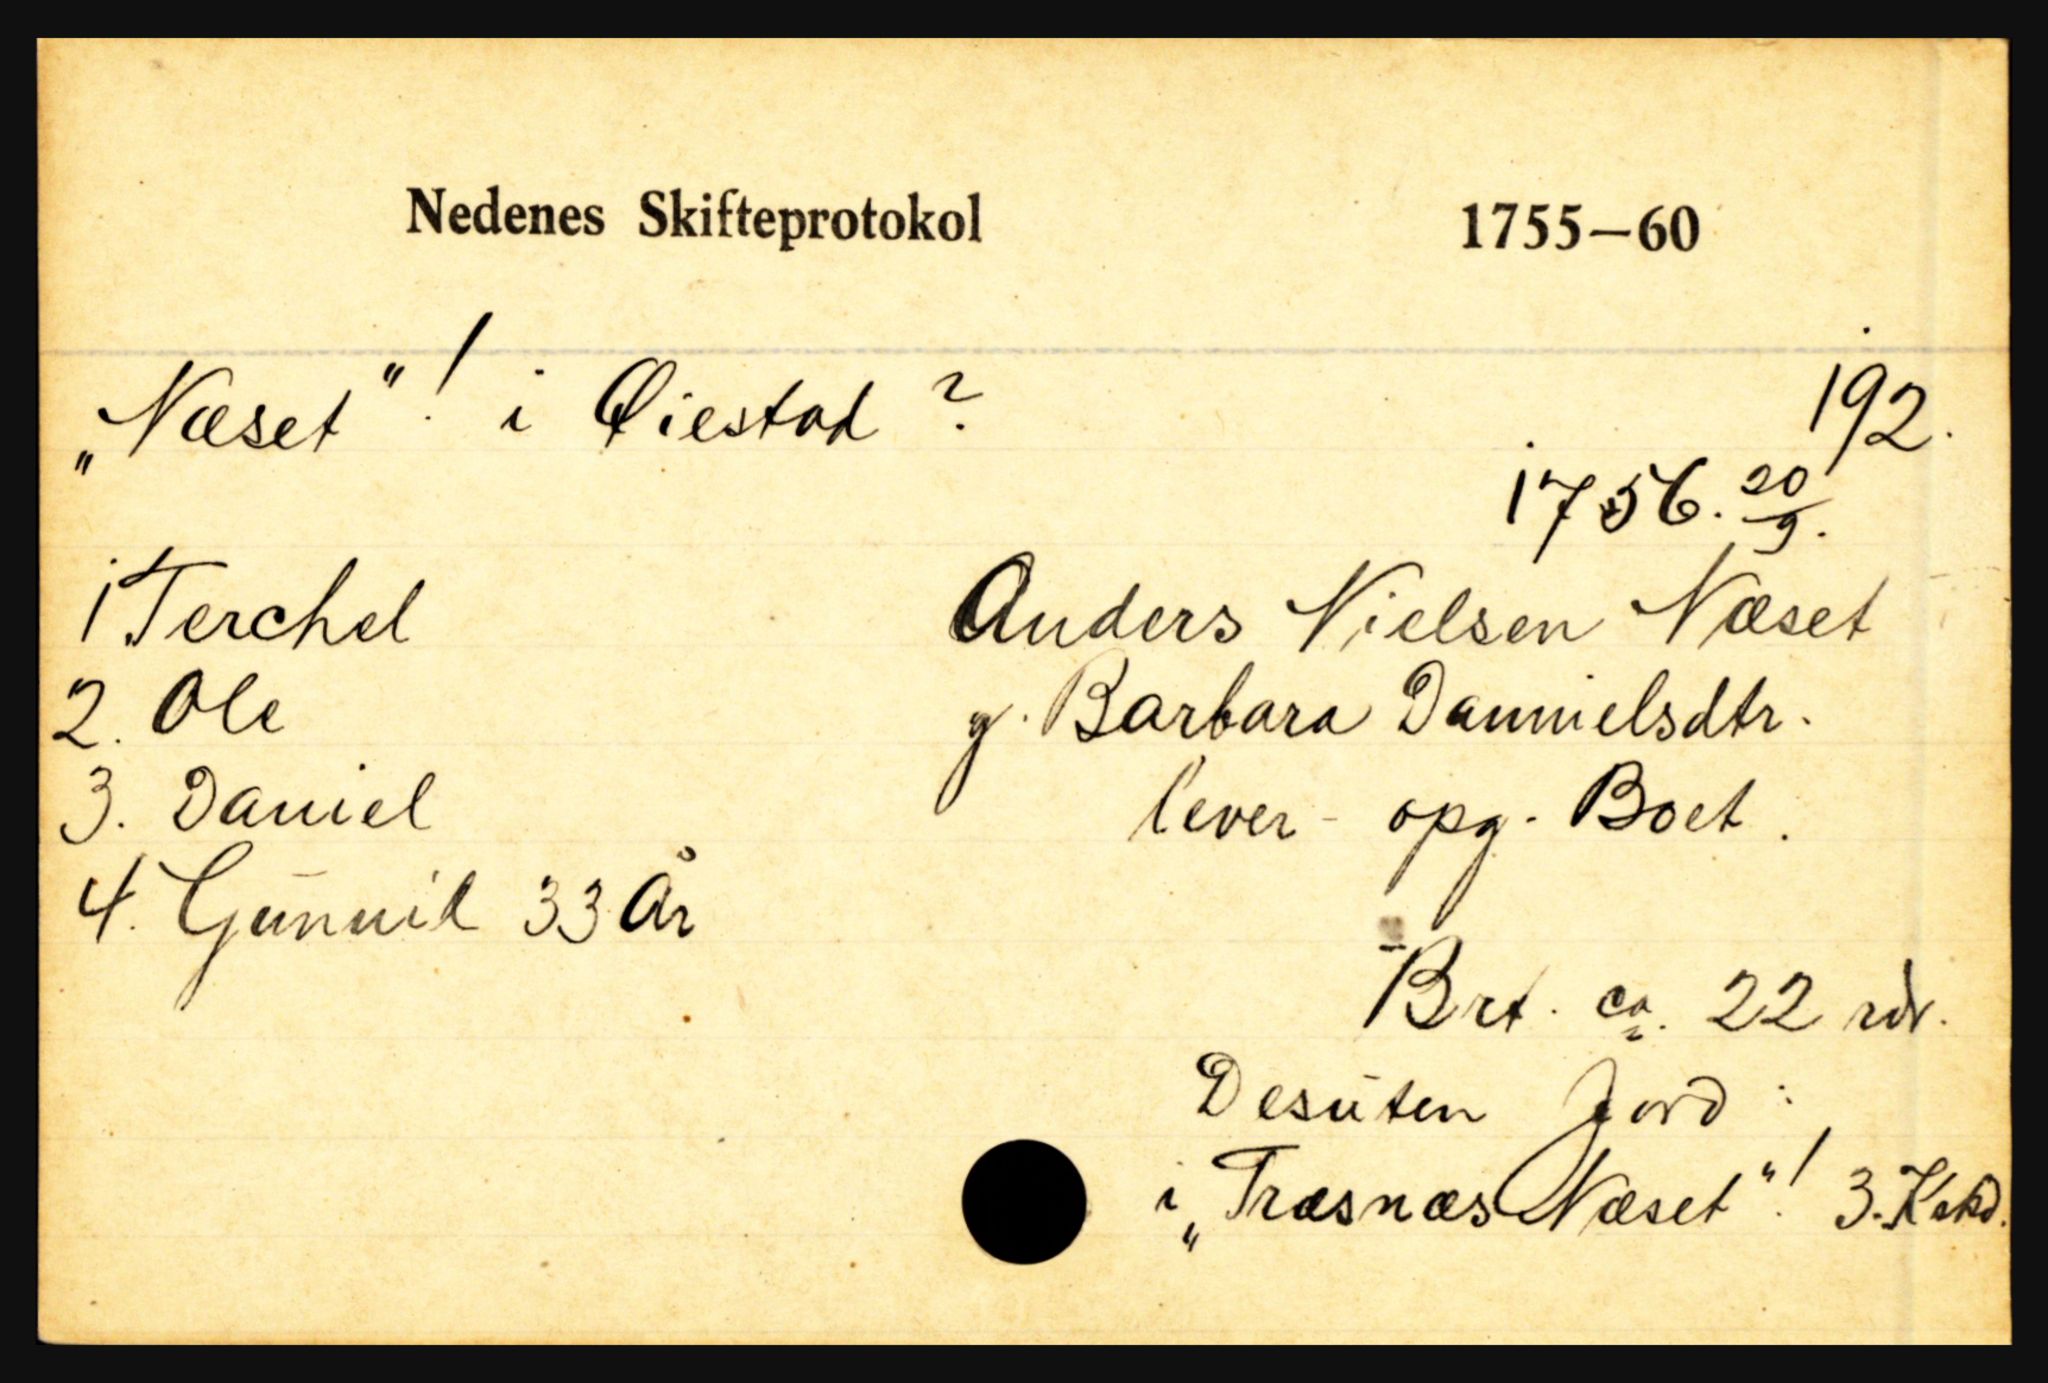 Nedenes Skifteprotokol 1755—60
„Næset"! i Øiestad ?
192.
1756. 20/9.
1. Terchel Anders Nielsen Næset
2. Ole g. Barbara Dannielsdtr.
3. Daniel lever - opg. Boet.
4. Gunnil 33 År
Brt. ca. 22 rdr.
Desuten Jord :
i „Træsnæs Næset"! 3. Kskd.